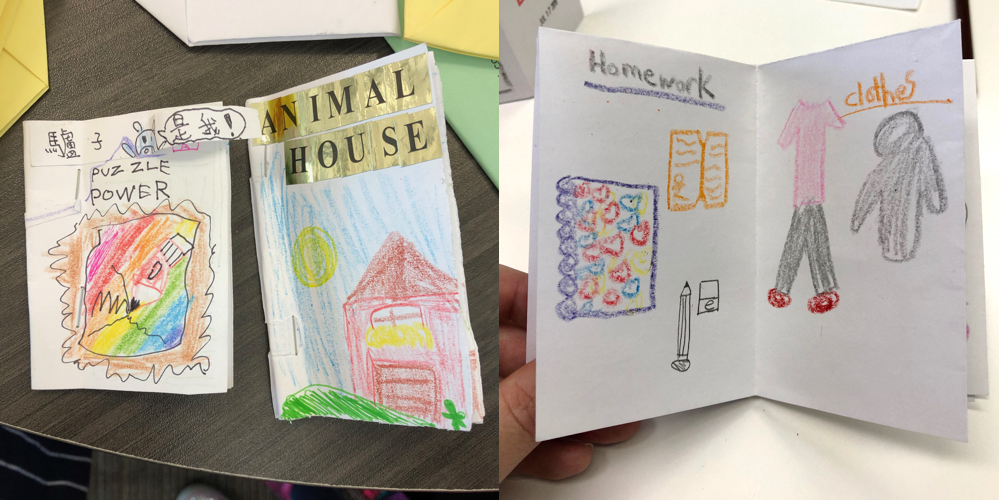 驢子
是我!
PUZZLE
POWER
ANIMAL
HOUSE
Homework
clothes
e